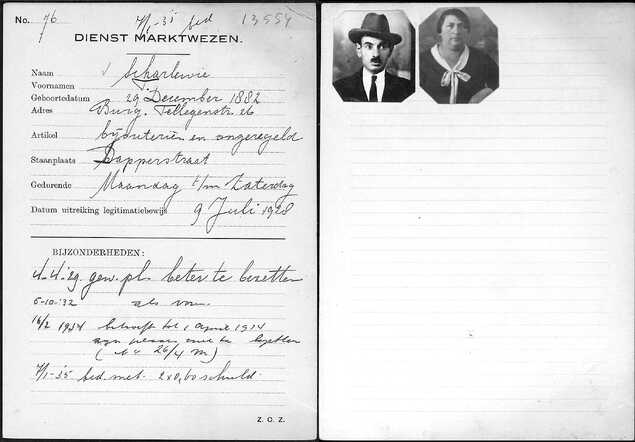 No. 76 7/1-35 bed 13554
DIENST MARKTWEZEN.
Naam Scharlewie
Voornamen J.
Geboortedatum 29 December 1882
Adres Burg. Tellegenstr. 26
Artikel bijouterieën en ongeregeld
Staanplaats Dapperstraat
Gedurende Maandag t/m Zaterdag
Datum uitreiking legitimatiebewijs 9 Juli 1928
BIJZONDERHEDEN:
4-4-29. gew. pl. beter te bezetten
5-10-32 als voren
16/2 1934 tot 1 April 1934
zijn te bezetten
( 26/4 M)
7/1-35 bed. met 2x0,60 schuld.
Z. O. Z.